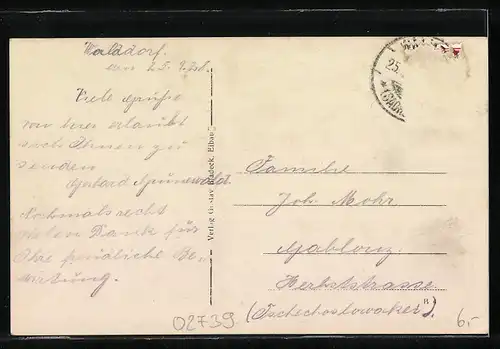 Walddorf.
Viele Grüße
von hier erlaubt
sich Ihnen zu
senden
Gerhard Grünewald
Nochmals recht
vielen Dank für
Ihre freundliche Be-
wirtung.
Verlag Gustav Stadeck, Eibau
25.
Familie
Joh. Mohr
Gablonz.
Herbststrasse
(Tschechoslowakei).
02739
6.-